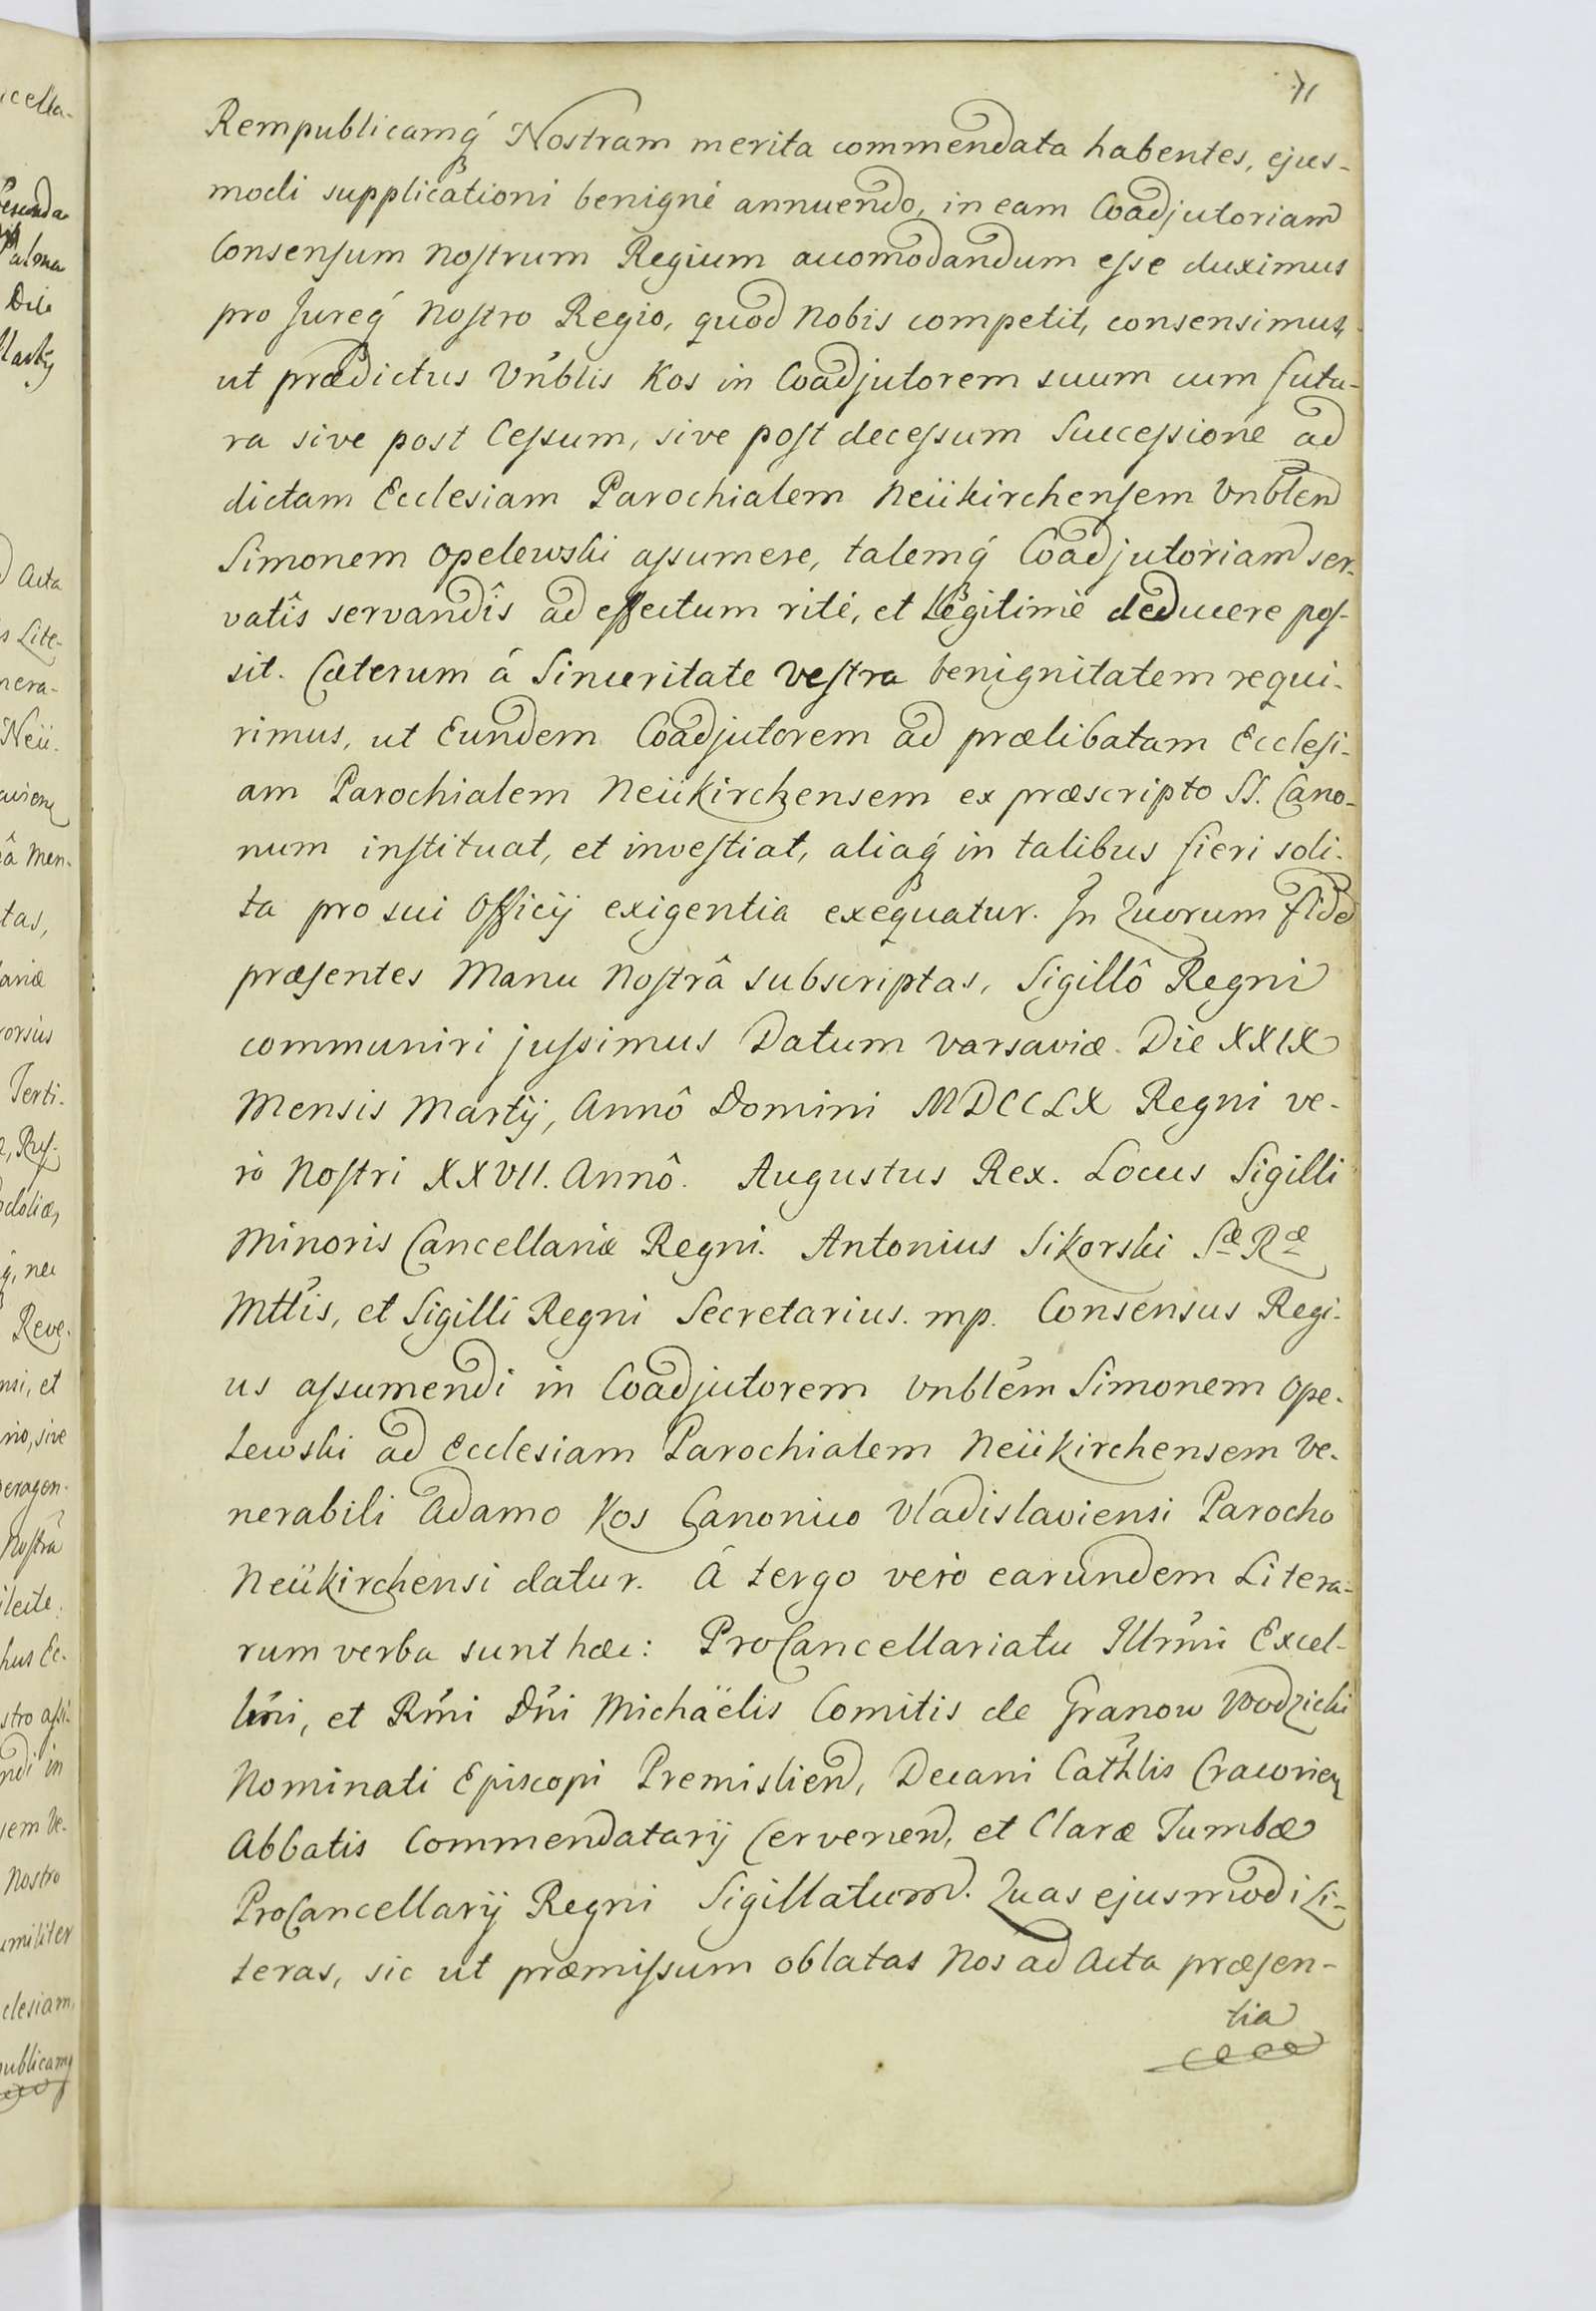 71
Rempublicamq́ Nostram merita commendata habentes, ejus-
modi supplicationi benignè annuendo, in eam Coadjutoriam
Consensum Nostrum Regium accomodandum esse duximus
pro Jureq́ Nostro Regio, quod Nobis competit, consensimus,
ut prædictus Vnblis Kos in Coadjutorem suum cum futu-
ra sive post Cessum, sive post decessum Successione ad
dictam Ecclesiam Parochialem Neükirchensem Vnblem
Simonem Opelewski assumere, talemq́ Coadjutoriam ser-
vatîs servandîs ad effectum ritè, et Legitimè deducere pos-
sit. Cæterum á Sinceritate Vestra benignitatem requi-
rimus, ut Eundem Coadjutorem ad prælibatam Ecclesi-
am Parochialem Neükirchensem ex præscripto SS. Cano-
num instituat, et investiat, aliaq́ in talibus fieri soli-
ta pro sui Officij exigentia exequatur. In Quorum fidem
præsentes Manu Nostrâ subscriptas, Sigillô Regni
communiri jussimus Datum Varsaviæ. Die XXIX
Mensis Martij, Annô Domini MDCCLX Regni ve-
rò Nostri XXVII. Annô. Augustus Rex. Locus Sigilli
Minoris Cancellariæ Regni. Antonius Sikorski Sæ Ræ
Mttis, et Sigilli Regni Secretarius. mp. Consensus Regi-
us assumendi in Coadjutorem Vnblem Simonem Ope-
lewski ad Ecclesiam Parochialem Neükirchensem Ve-
nerabili Adamo Kos Canonico Vladislaviensi Parocho
Neükirchensi datur. Á tergo verò earundem Litera-
rum verba sunt hæc: ProCancellariatu Illrmi Excel-
lmi, et Rmi Dni Michaëlis Comitis de Granow Wodzicki
Nominati Episcopi Premislien, Decani Cathlis Cracovien
Abbatis Commendatarij Cervenen, et Claræ Tumbæ
ProCancellarij Regni Sigillatum. Quas ejusmodi Li-
teras, sic ut præmissum oblatas Nos ad Acta præsen-
tia